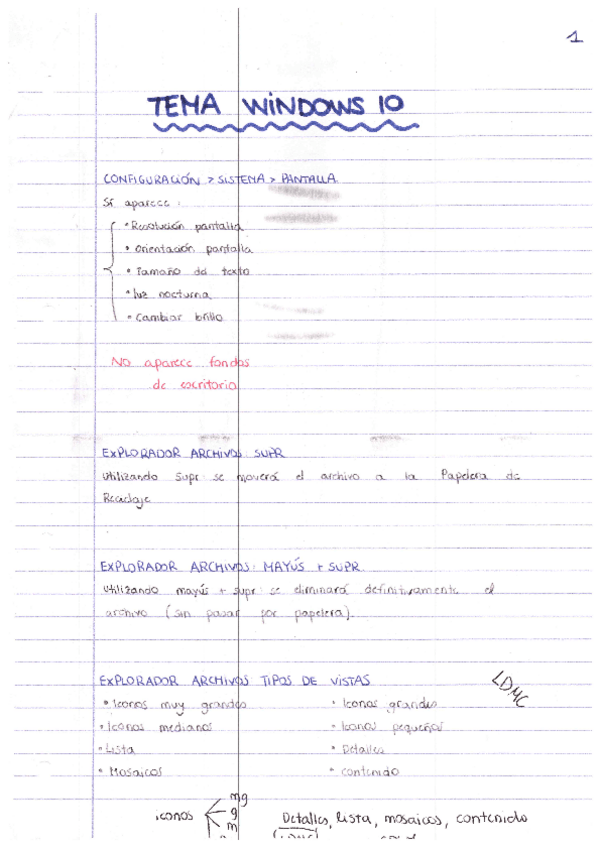 1
TEMA WINDOWS 10
CONFIGURACIÓN > SISTEMA > PANTALLA
Sí aparece:
• Resolución pantalla
• Orientación pantalla
• Tamaño del texto
• luz nocturna
• Cambiar brillo
No aparece fondos
de escritorio
EXPLORADOR ARCHIVOS SUPR
Utilizando Supr se moverá el archivo a la Papelera de
Reciclaje
EXPLORADOR ARCHIVOS: MAYÚS + SUPR
Utilizando mayús + supr se eliminará definitivamente el
archivo (sin pasar por papelera).
EXPLORADOR ARCHIVOS TIPOS DE VISTAS
LDMC
• Iconos muy grandes • Iconos grandes
• Iconos medianos • Iconos pequeños
• Lista • Detalles
• Mosaicos • Contenido
mg
iconos g Detalles, lista, mosaicos, contenido
m (LDMC)